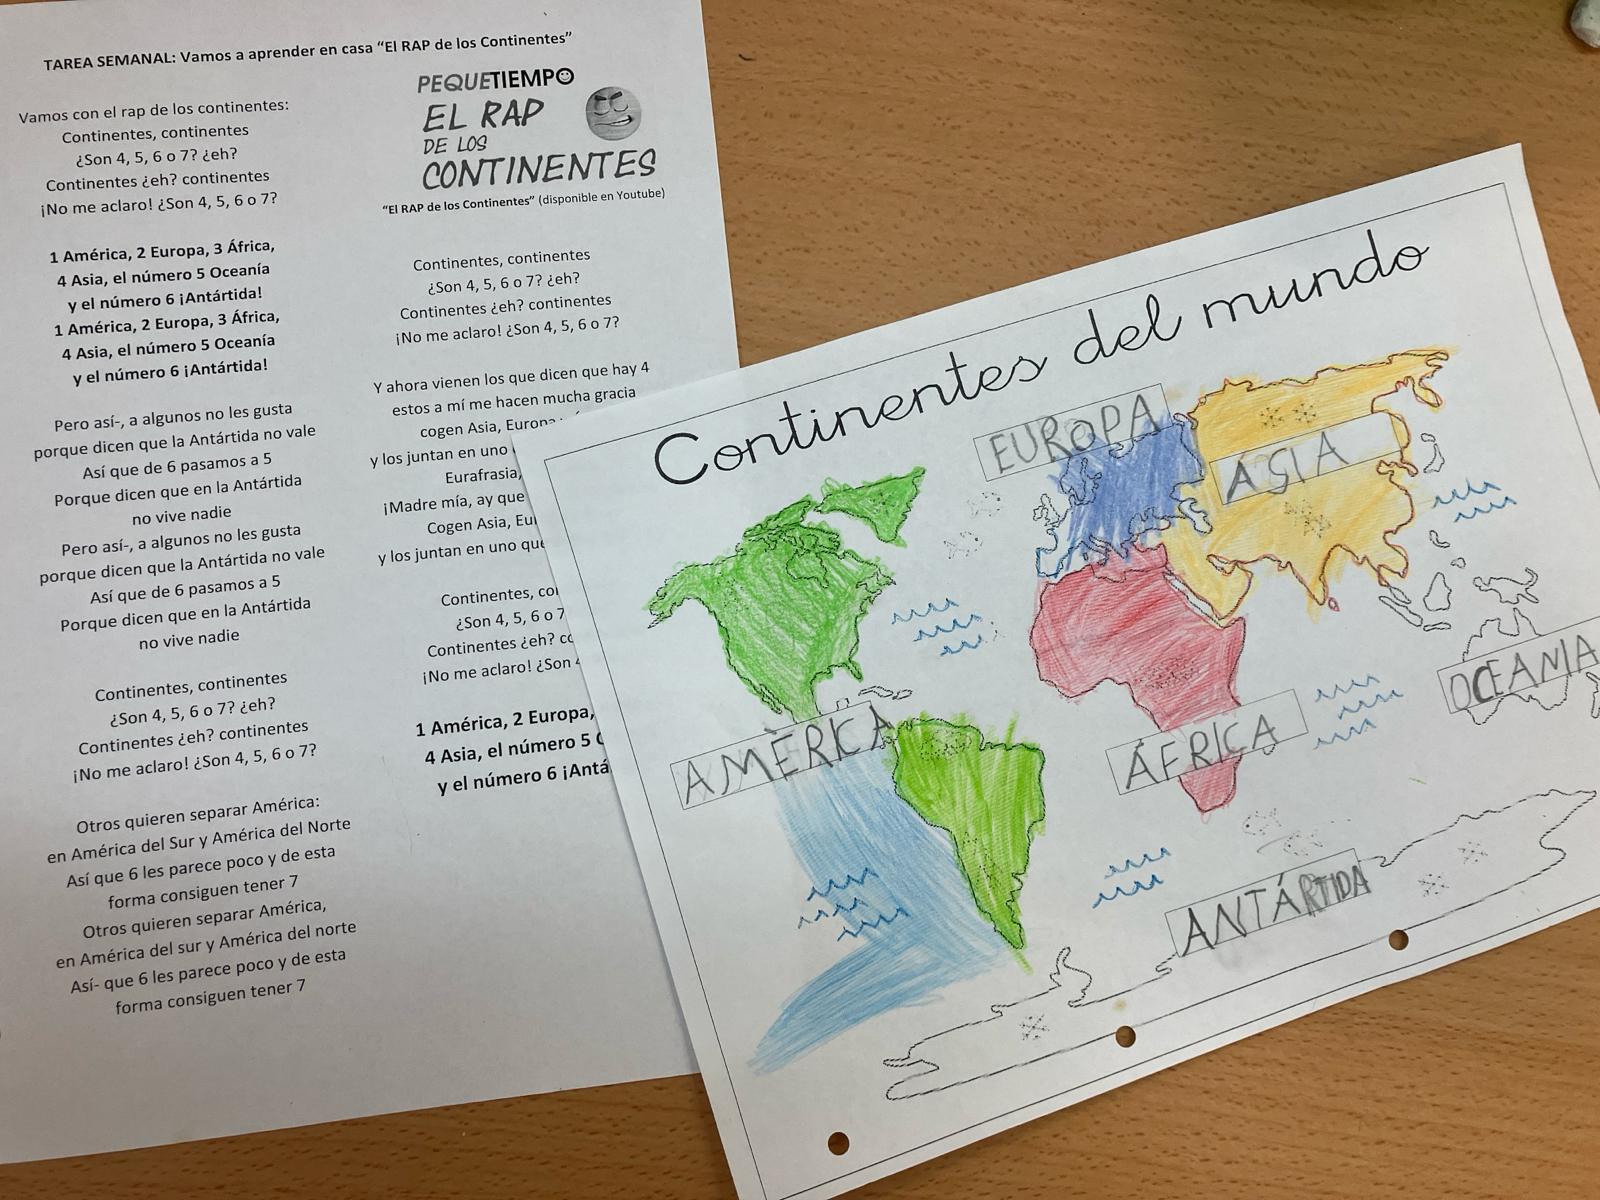 TAREA SEMANAL: Vamos a aprender en casa “El RAP de los Continentes”
Vamos con el rap de los continentes:
Continentes, continentes
¿Son 4, 5, 6 o 7? ¿eh?
Continentes ¿eh? continentes
¡No me aclaro! ¿Son 4, 5, 6 o 7?
1 América, 2 Europa, 3 África,
4 Asia, el número 5 Oceanía
y el número 6 ¡Antártida!
1 América, 2 Europa, 3 África,
4 Asia, el número 5 Oceanía
y el número 6 ¡Antártida!
Pero así-, a algunos no les gusta
porque dicen que la Antártida no vale
Así que de 6 pasamos a 5
Porque dicen que en la Antártida
no vive nadie
Pero así-, a algunos no les gusta
porque dicen que la Antártida no vale
Así que de 6 pasamos a 5
Porque dicen que en la Antártida
no vive nadie
Continentes, continentes
¿Son 4, 5, 6 o 7? ¿eh?
Continentes ¿eh? continentes
¡No me aclaro! ¿Son 4, 5, 6 o 7?
Otros quieren separar América:
en América del Sur y América del Norte
Así que 6 les parece poco y de esta
forma consiguen tener 7
Otros quieren separar América,
en América del sur y América del norte
Así- que 6 les parece poco y de esta
forma consiguen tener 7
PEQUETIEMPO
EL RAP
DE LOS
CONTINENTES
“El RAP de los Continentes” (disponible en Youtube)
Continentes, continentes
¿Son 4, 5, 6 o 7? ¿eh?
Continentes ¿eh? continentes
¡No me aclaro! ¿Son 4, 5, 6 o 7?
Y ahora vienen los que dicen que hay 4
estos a mí me hacen mucha gracia
cogen Asia, Europa
y los juntan en uno
Eurafrasia,
¡Madre mía, ay que
Cogen Asia,
y los juntan en uno que
Continentes,
¿Son 4, 5, 6 o 7
Continentes ¿eh?
¡No me aclaro! ¿Son
1 América, 2 Europa,
4 Asia, el número 5
y el número 6
Continentes del mundo
EUROPA
ÁSIA
OCEANIA
AMÈRICA
ÁFRICA
ANTÁRTIDA